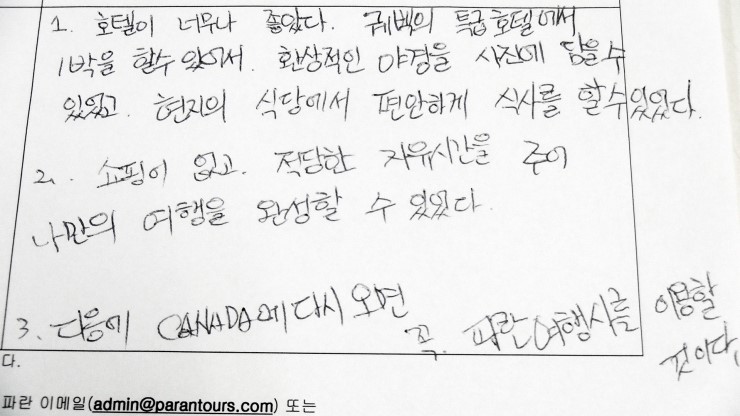 1. 호텔이 너무나 좋았다. 퀘백의 특급호텔에서
1박을 할수 있어서. 환상적인 야경을 사진에 담을수
있었고. 현지의 식당에서 편안하게 식사를 할수있었다.
2. 쇼핑이 없고. 적당한 자유시간을 주어
나만의 여행을 완성할 수 있었다.
3. 다음에 CANADA에 다시 오면
꼭. 파란여행사를 이용할
것이다.
다.
파란 이메일(admin@parantours.com) 또는